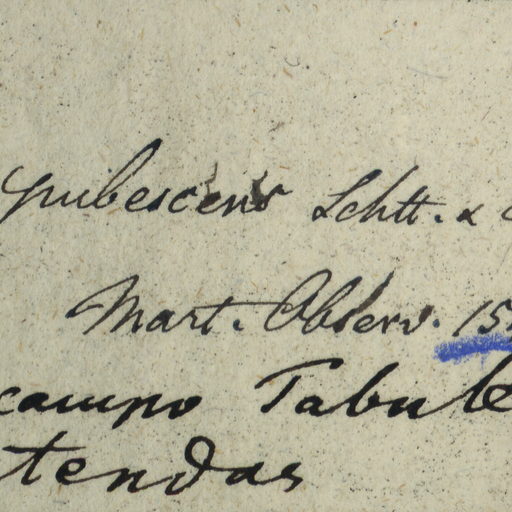 pubescens Schtt. &
Mart. Observ. 15
campo Tabule
tendas